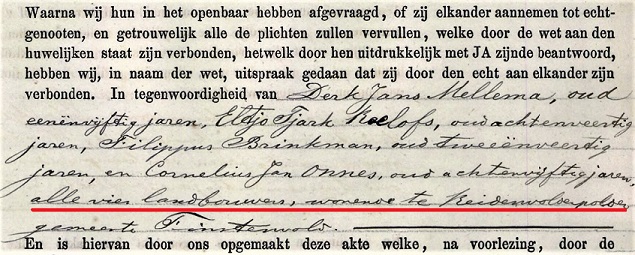 Waarna wij hun in het openbaar hebben afgevraagd, of zij elkander aannemen tot echt-
genooten, en getrouwelijk alle de plichten zullen vervullen, welke door de wet aan den
huwelijken staat zijn verbonden, hetwelk door hen uitdrukkelijk met JA zijnde beantwoord,
hebben wij, in naam der wet, uitspraak gedaan dat zij door den echt aan elkander zijn
verbonden. In tegenwoordigheid van Derk Jans Mellema, oud
eenënvijftig jaren, Eltjo Tjark Roelofs, oud achtenveertig
jaren, Filippus Brinkman, oud tweeënveertig
jaren, en Cornelius Jan Onnes, oud achtenvijftig jaren,
alle vier landbouwers, wonende te Reiderwolderpolder
gemeente Finsterwold.
En is hiervan door ons opgemaakt deze akte welke, na voorlezing, door de